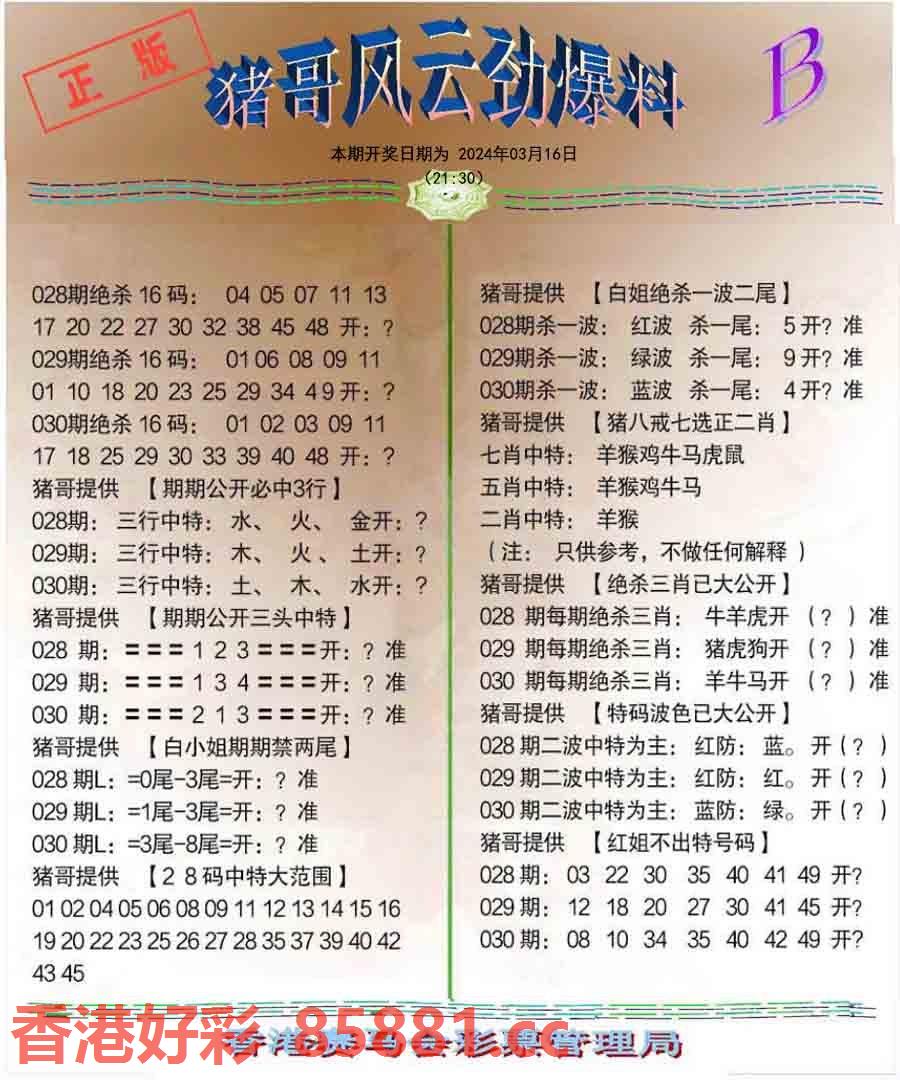 正版
猪哥风云劲爆料
B
本期开奖日期为 2024年03月16日
(21:30)
028期绝杀 16 码： 04 05 07 11 13
17 20 22 27 30 32 38 45 48 开：？
029期绝杀 16 码： 01 06 08 09 11
01 10 18 20 23 25 29 34 49 开：？
030期绝杀 16 码： 01 02 03 09 11
17 18 25 29 30 33 39 40 48 开：？
猪哥提供 【期期公开必中3行】
028期： 三行中特： 水、 火、 金开：？
029期： 三行中特： 木、 火、 土开：？
030期： 三行中特： 土、 木、 水开：？
猪哥提供 【期期公开三头中特】
028 期：＝＝＝1 2 3＝＝＝开：？准
029 期：＝＝＝1 3 4＝＝＝开：？准
030 期：＝＝＝2 1 3＝＝＝开：？准
猪哥提供 【白小姐期期禁两尾】
028 期L：=0尾-3尾=开：？准
029 期L：=1尾-3尾=开：？准
030 期L：=3尾-8尾=开：？准
猪哥提供 【28码中特大范围】
01 02 04 05 06 08 09 11 12 13 14 15 16
19 20 22 23 25 26 27 28 35 37 39 40 42
43 45
猪哥提供 【白姐绝杀一波二尾】
028期杀一波： 红波 杀一尾： 5开？准
029期杀一波： 绿波 杀一尾： 9开？准
030期杀一波： 蓝波 杀一尾： 4开？准
猪哥提供 【猪八戒七选正二肖】
七肖中特： 羊猴鸡牛马虎鼠
五肖中特： 羊猴鸡牛马
二肖中特： 羊猴
（注： 只供参考，不做任何解释）
猪哥提供 【绝杀三肖已大公开】
028 期每期绝杀三肖： 牛羊虎开 （？）准
029 期每期绝杀三肖： 猪虎狗开 （？）准
030 期每期绝杀三肖： 羊牛马开 （？）准
猪哥提供 【特码波色已大公开】
028 期二波中特为主： 红防： 蓝。 开（？）
029 期二波中特为主： 红防： 红。 开（？）
030 期二波中特为主： 蓝防： 绿。 开（？）
猪哥提供 【红姐不出特号码】
028 期： 03 22 30 35 40 41 49 开？
029 期： 12 18 20 27 30 41 45 开？
030 期： 08 10 34 35 40 42 49 开？
香港好彩 85881.cc
香港赛马会彩票管理局